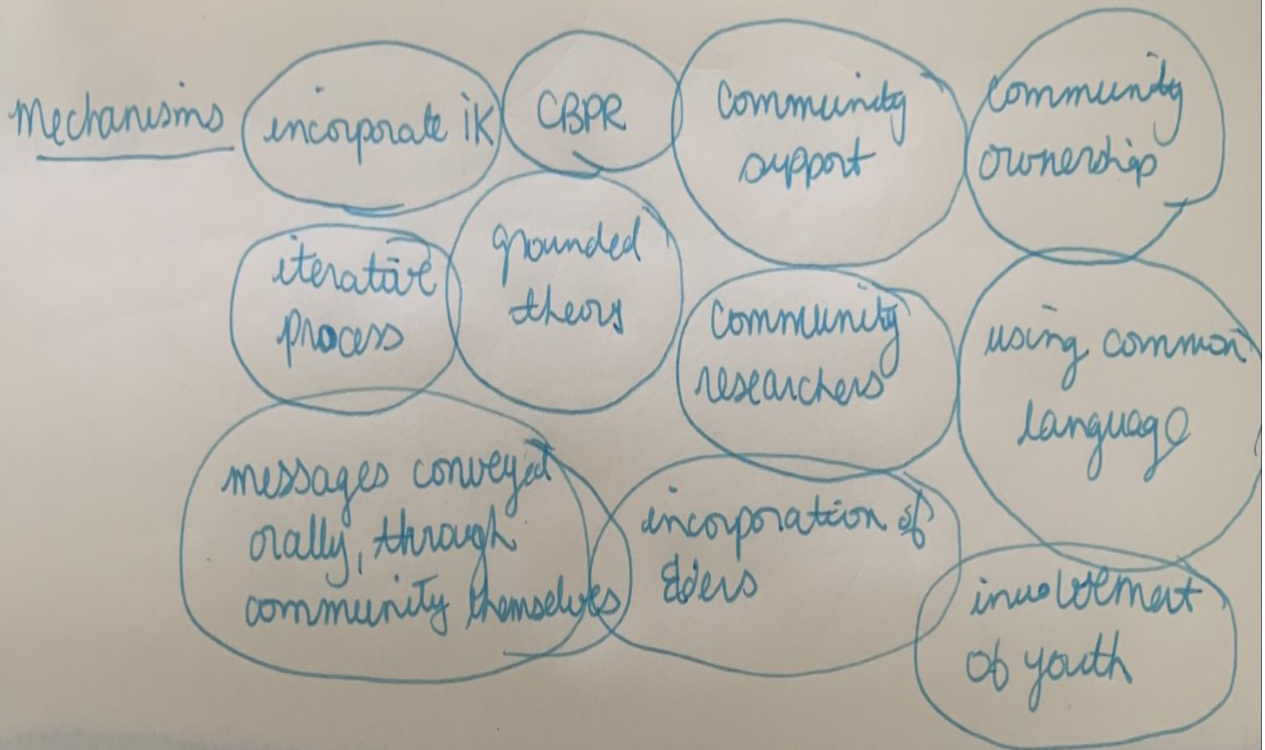 Mechanisms
incorporate iK
CBPR
community
support
community
ownership
iterative
process
grounded
theory
community
researchers
using common
language
messages conveyed
orally, through
community themselves
incorporation of
Elders
involvement
of youth